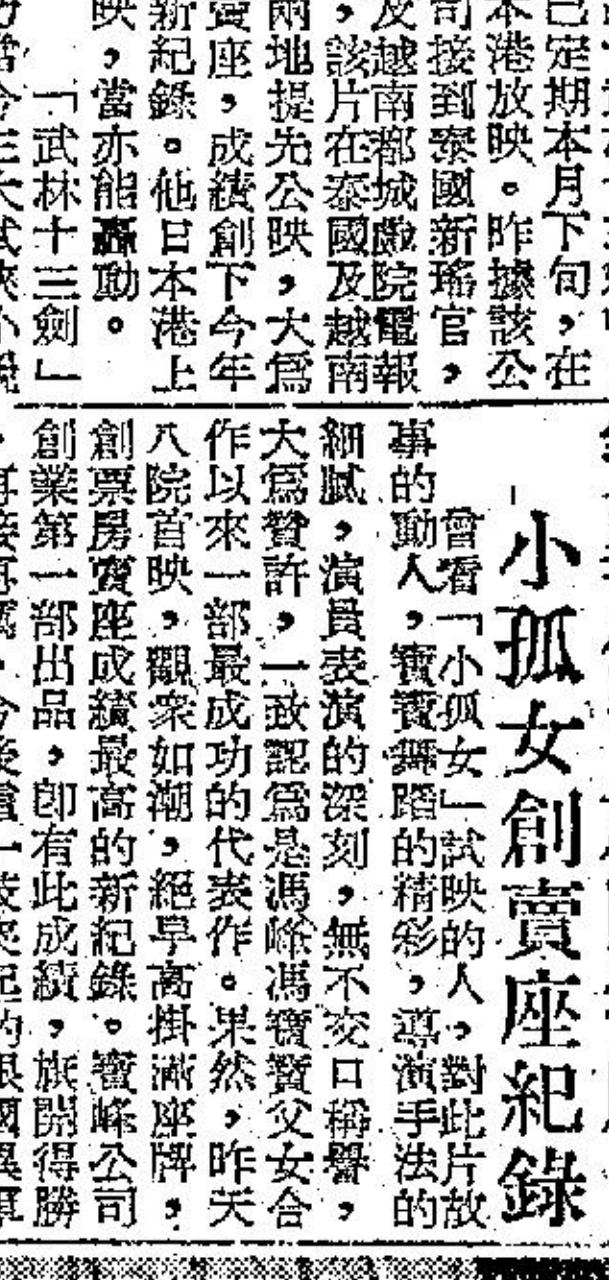 已定期本月下旬，在
本港放映。昨據該公
司接到泰國新瑤宮，
及越南都城戲院電報
，該片在泰國及越南
兩地提先公映，大為
賣座，成績創下今年
新紀錄。他日本港上
映，當亦能轟動。
「武林十三劍」
小孤女創賣座紀錄
曾看「小孤女」試映的人，對此片故
事的動人，寶寶舞蹈的精彩，導演手法的
細膩，演員表演的深刻，無不交口稱譽，
大為贊許，一致認為是馮峰馮寶寶父女合
作以來一部最成功的代表作。果然，昨天
八院首映，觀衆如潮，絕早高掛滿座牌，
創票房賣座成績最高的新紀錄。寶峰公司
創業第一部出品，即有此成績，旗開得勝